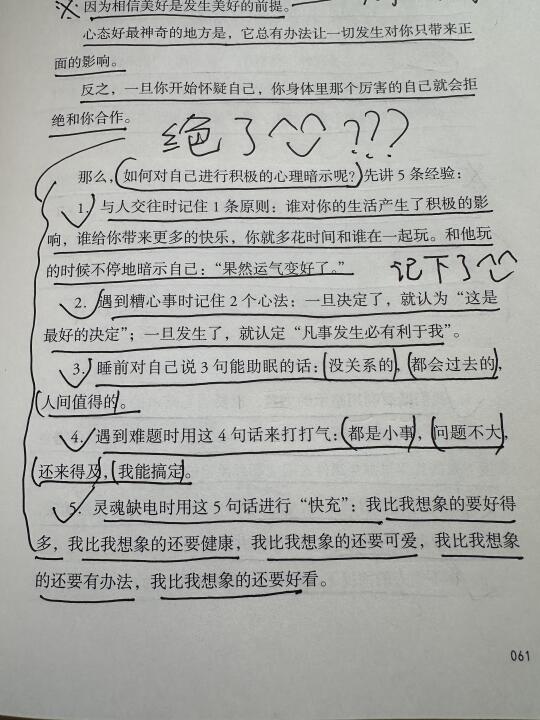 ※ 因为相信美好是发生美好的前提。
心态好最神奇的地方是，它总有办法让一切发生对你只带来正
面的影响。
反之，一旦你开始怀疑自己，你身体里那个厉害的自己就会拒
绝和你合作。
绝了 ???
那么，如何对自己进行积极的心理暗示呢？先讲 5 条经验：
1. 与人交往时记住 1 条原则：谁对你的生活产生了积极的影
响，谁给你带来更多的快乐，你就多花时间和谁在一起玩。和他玩
的时候不停地暗示自己：“果然运气变好了。”
记下了
2. 遇到糟心事时记住 2 个心法：一旦决定了，就认为“这是
最好的决定”；一旦发生了，就认定“凡事发生必有利于我”。
3. 睡前对自己说 3 句能助眠的话：没关系的，都会过去的，
人间值得的。
4. 遇到难题时用这 4 句话来打打气：都是小事，问题不大，
还来得及，我能搞定。
5. 灵魂缺电时用这 5 句话进行“快充”：我比我想象的要好得
多，我比我想象的还要健康，我比我想象的还要可爱，我比我想象
的还要有办法，我比我想象的还要好看。
061